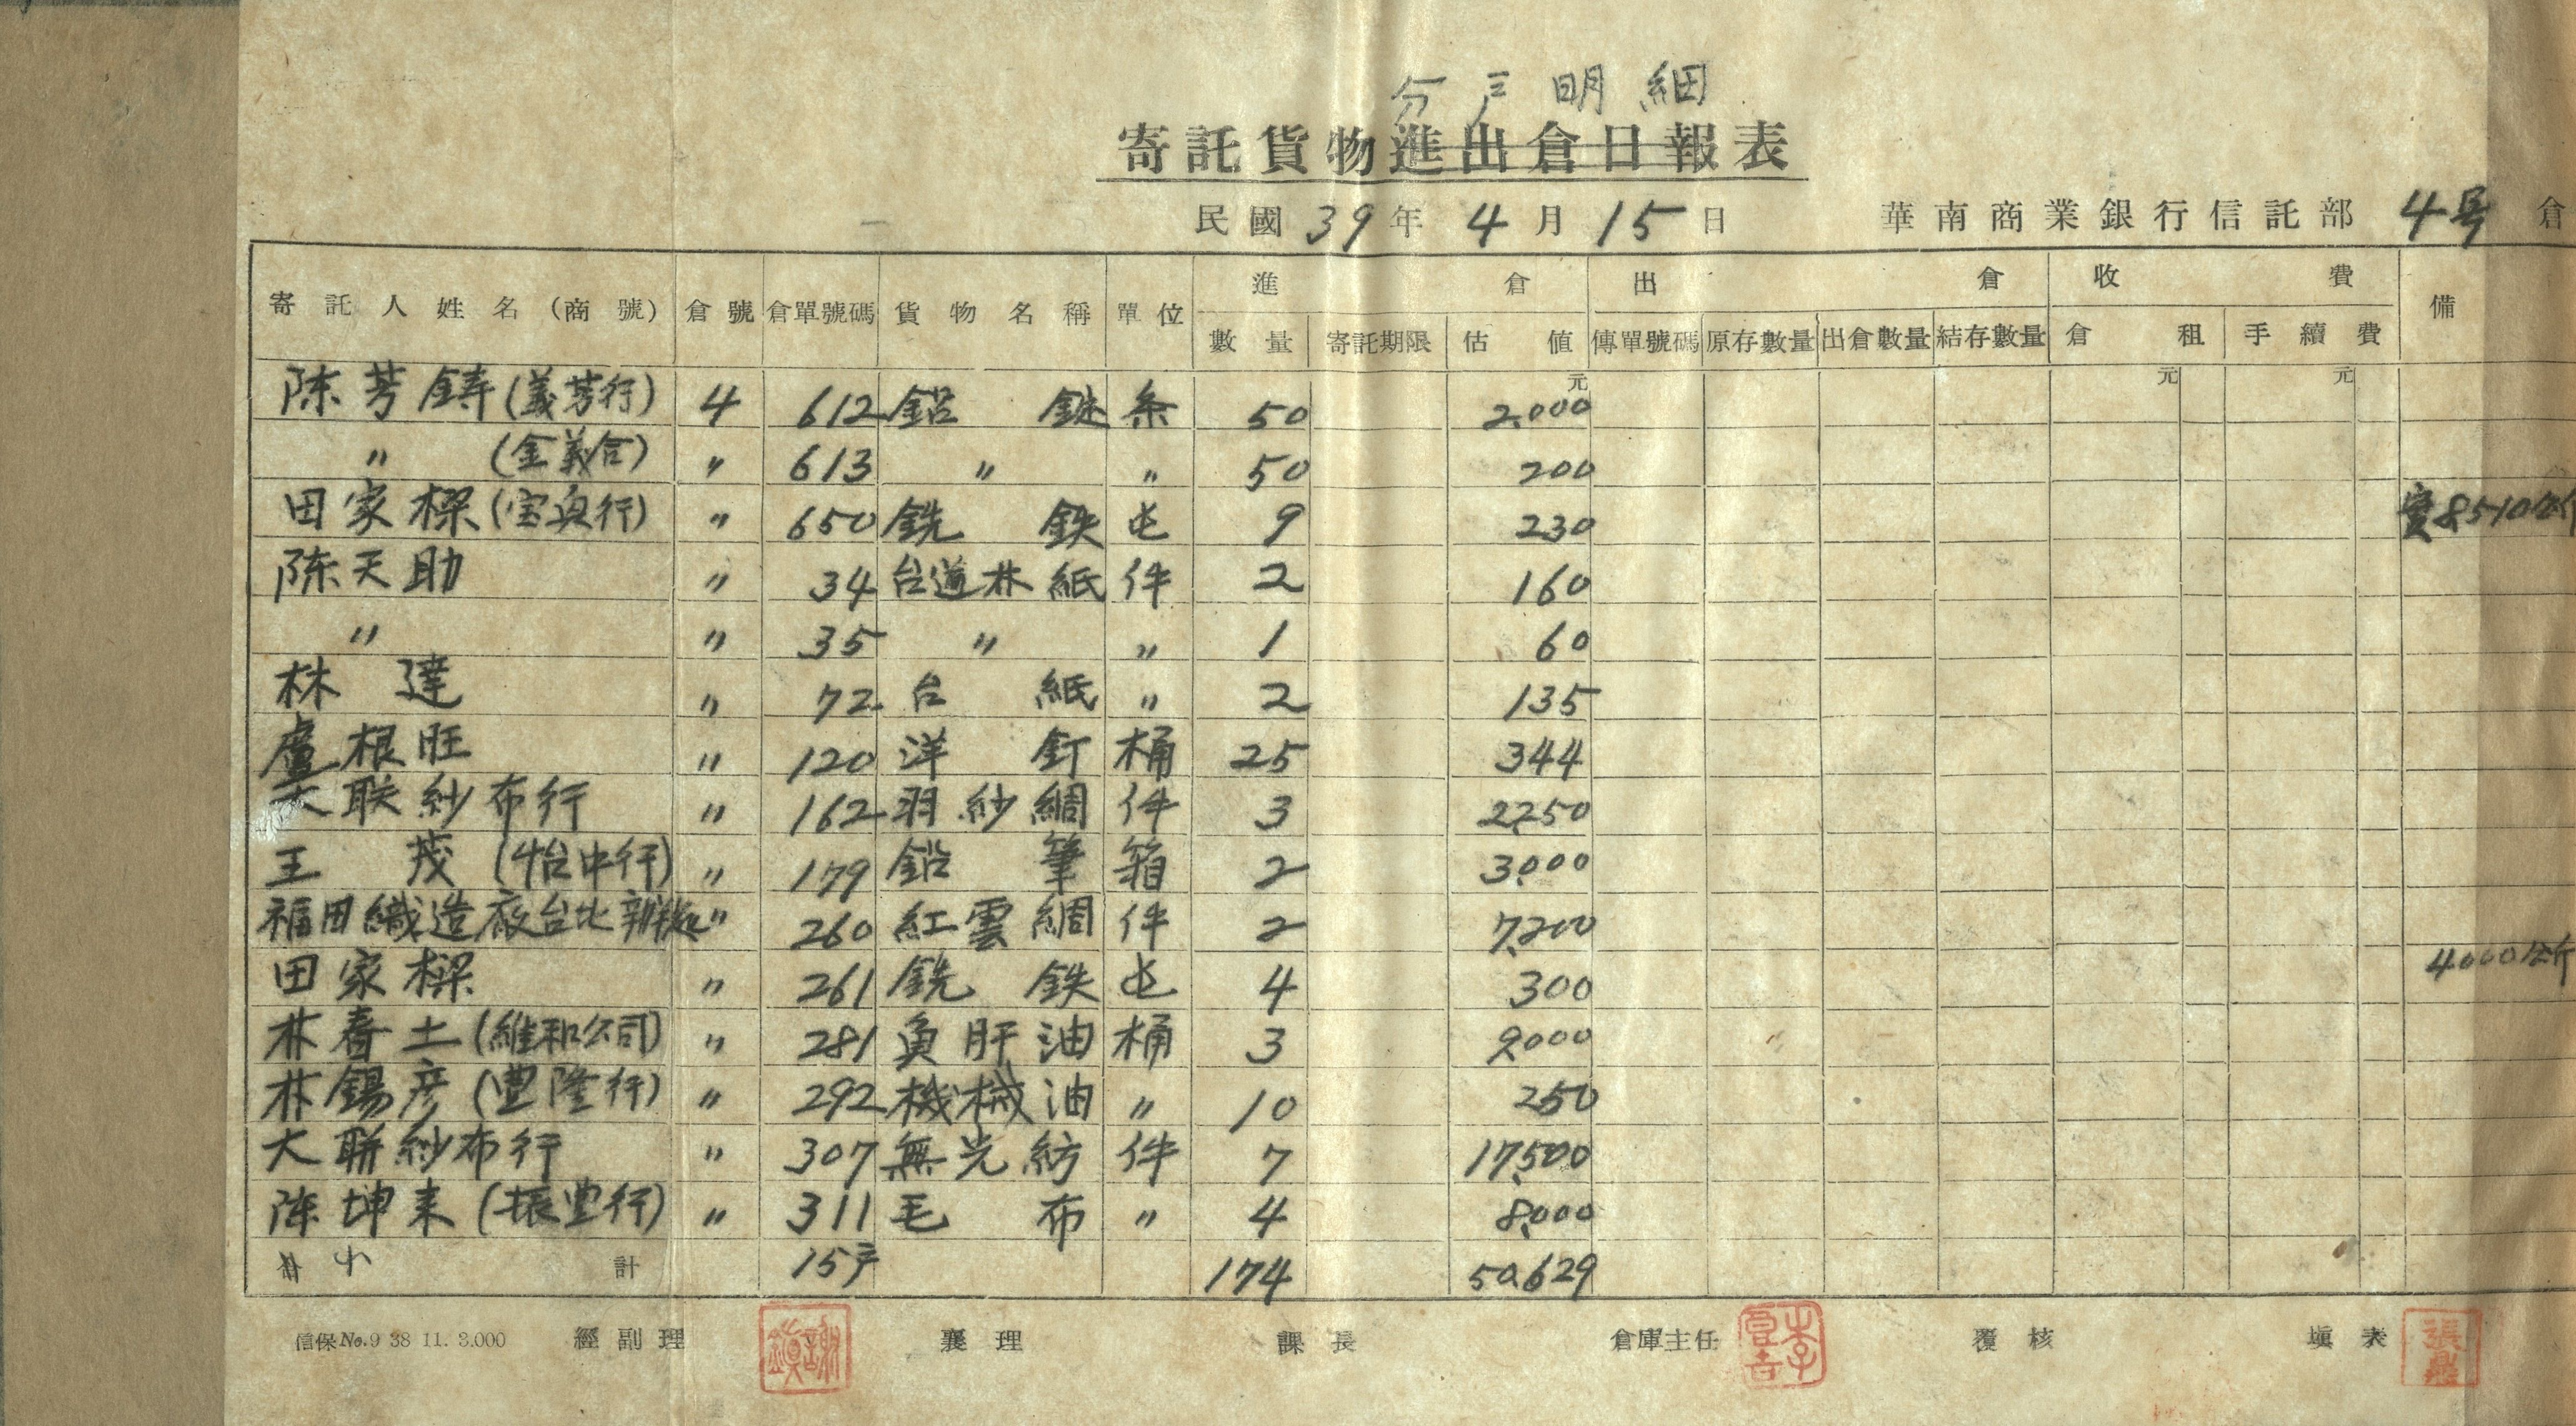 分戶明細
寄託貨物進出倉日報表
民國39年4月15日 華南商業銀行信託部 4号 倉
進 倉 出 倉 收 費
寄託人姓名(商號) 倉號 倉單號碼 貨物名稱 單位 備
數量 寄託期限 估值 傳單號碼 原存數量 出倉數量 結存數量 倉租 手續費
元 元 元
陈芳鋳(義芳行) 4 612 鉛 錠 条 50 2,000
〃 (金義合) 〃 613 〃 〃 50 200
田家樑(宝奐行) 〃 650 銑 鉄 屯 9 230 實8510公斤
陈天助 〃 34 台道林紙 件 2 160
〃 〃 35 〃 〃 1 60
林 達 〃 72 台 紙 〃 2 135
盧根旺 〃 120 洋 釘 桶 25 344
大联紗布行 〃 162 羽紗綢 件 3 2,250
王 茂 (台中行) 〃 179 鉛 筆 箱 2 3,000
福田織造廠台北辦处 〃 260 紅雲綢 件 2 7,200
田家樑 〃 261 銑 鉄 屯 4 300 4000公斤
林春土(維和公司) 〃 281 魚肝油 桶 3 9,000
林錫彦(豊隆行) 〃 292 機械油 〃 10 250
大聯紗布行 〃 307 無光紡 件 7 17,500
陈坤来(振豊行) 〃 311 毛 布 〃 4 8,000
小 計 15戶 174 50,629
信保No.9 38 11. 3.000 經副理 襄理 課長 倉庫主任 覆核 填表